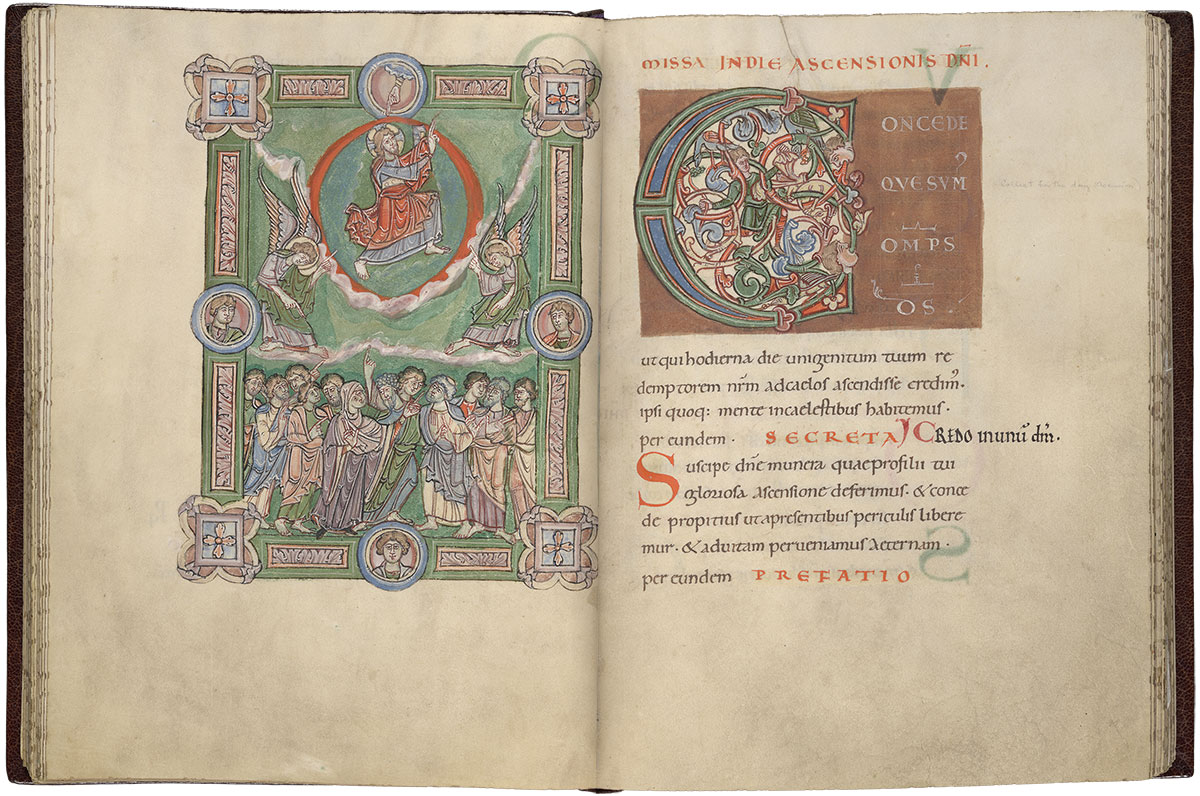 MISSA IN DIE ASCENSIONIS DN̄I.
CONCEDE
QVESVMꝰ
OMPS
D̄S
UT QUI HODIERNA DIE UNIGENITUM TUUM RE
DEMPTOREM NR̄M AD CAELOS ASCENDISSE CREDIMꝰ.
IPSI QUOQ: MENTE IN CAELESTIBUS HABITEMUS.
PER EUNDEM. SECRETA CREDO MUNIU DM̄.
SUSCIPE DN̄E MUNERA QUAE PRO FILII TUI
GLORIOSA ASCENSIONE DEFERIMUS. & CONCE
DE PROPITIUS UT A PRESENTIBUS PERICULIS LIBERE
MUR. & AD VITAM PERVENIAMUS AETERNAM.
PER EUNDEM PREFATIO